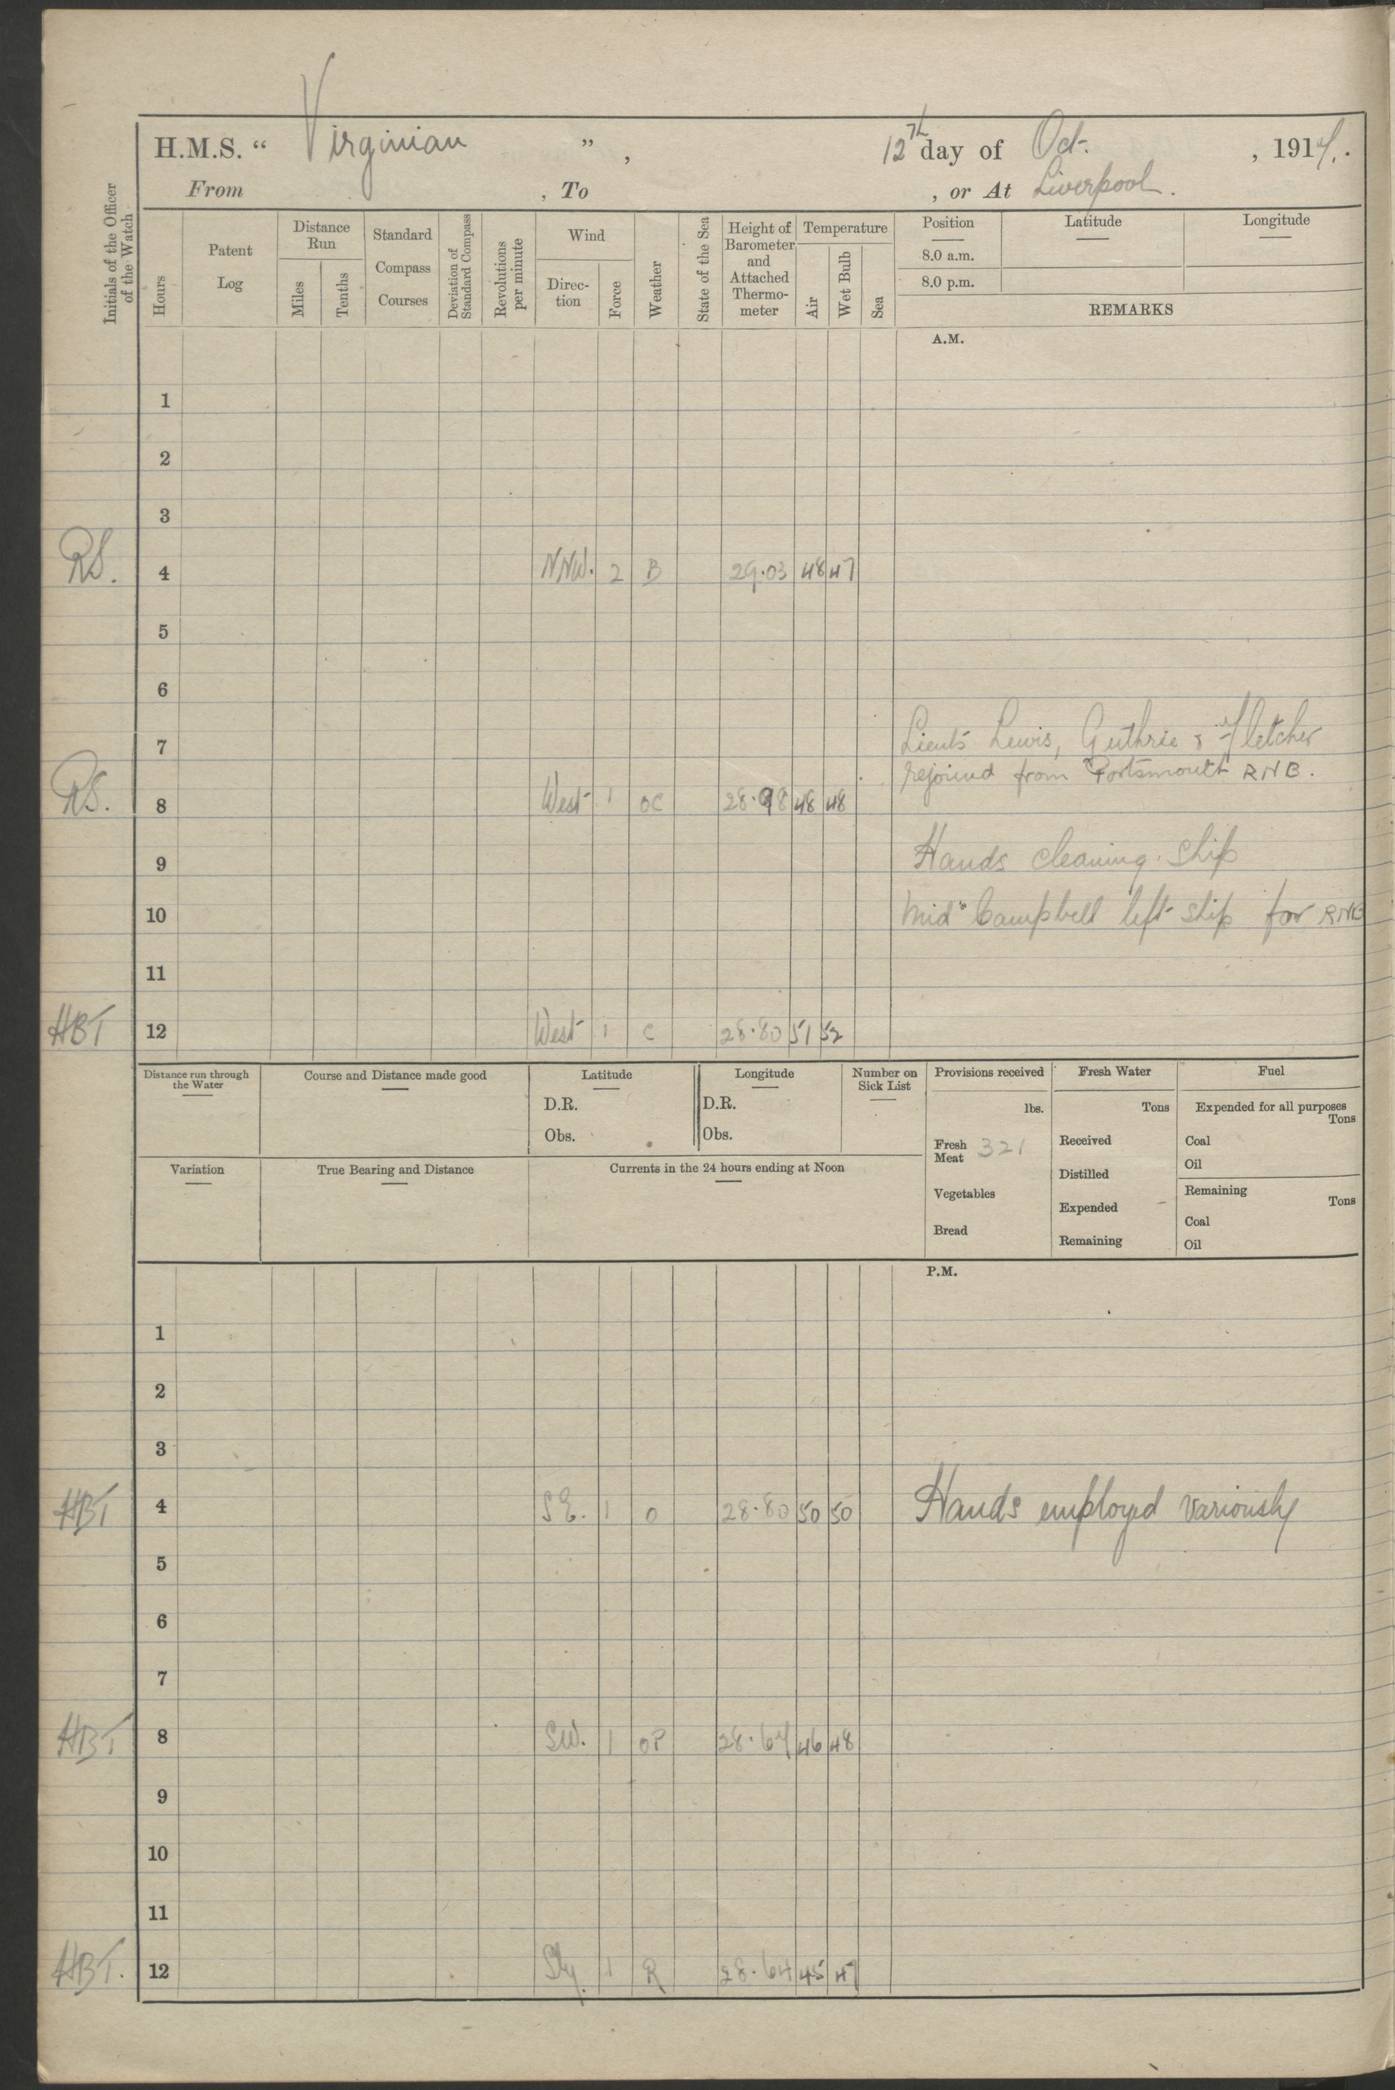 H.M.S. “ Virginian ” , 12th day of Oct. , 1914.
From , To , or At Liverpool.
Initials of the Officer of the Watch
Hours
Patent Log
Distance Run
Miles
Tenths
Standard Compass Courses
Deviation of Standard Compass
Revolutions per minute
Wind
Direction
Force
Weather
State of the Sea
Height of Barometer and Attached Thermometer
Temperature
Air
Wet Bulb
Sea
Position Latitude Longitude
8.0 a.m.
8.0 p.m.
REMARKS
A.M.
1
2
3
RS. 4 NNW. 2 B 29.03 48 47
5
6
7 Lieuts Lewis, Guthrie & Fletcher
rejoined from Portsmouth RNB.
RS. 8 West 1 OC 28.98 48 48
9 Hands cleaning ship
10 Mid Campbell left ship for RNB
11
HBT 12 West 1 C 28.80 51 52
Distance run through the Water
Course and Distance made good
Latitude
D.R.
Obs.
Longitude
D.R.
Obs.
Number on Sick List
Provisions received
lbs.
Fresh Meat 321
Vegetables
Bread
Fresh Water
Tons
Received
Distilled
Expended
Remaining
Fuel
Expended for all purposes
Tons
Coal
Oil
Remaining
Tons
Coal
Oil
Variation
True Bearing and Distance
Currents in the 24 hours ending at Noon
P.M.
1
2
3
HBT 4 S.E. 1 O 28.80 50 50 Hands employed variously
5
6
7
HBT 8 SW. 1 OP 28.64 46 48
9
10
11
HBT. 12 Sly. 1 R 28.64 45 47